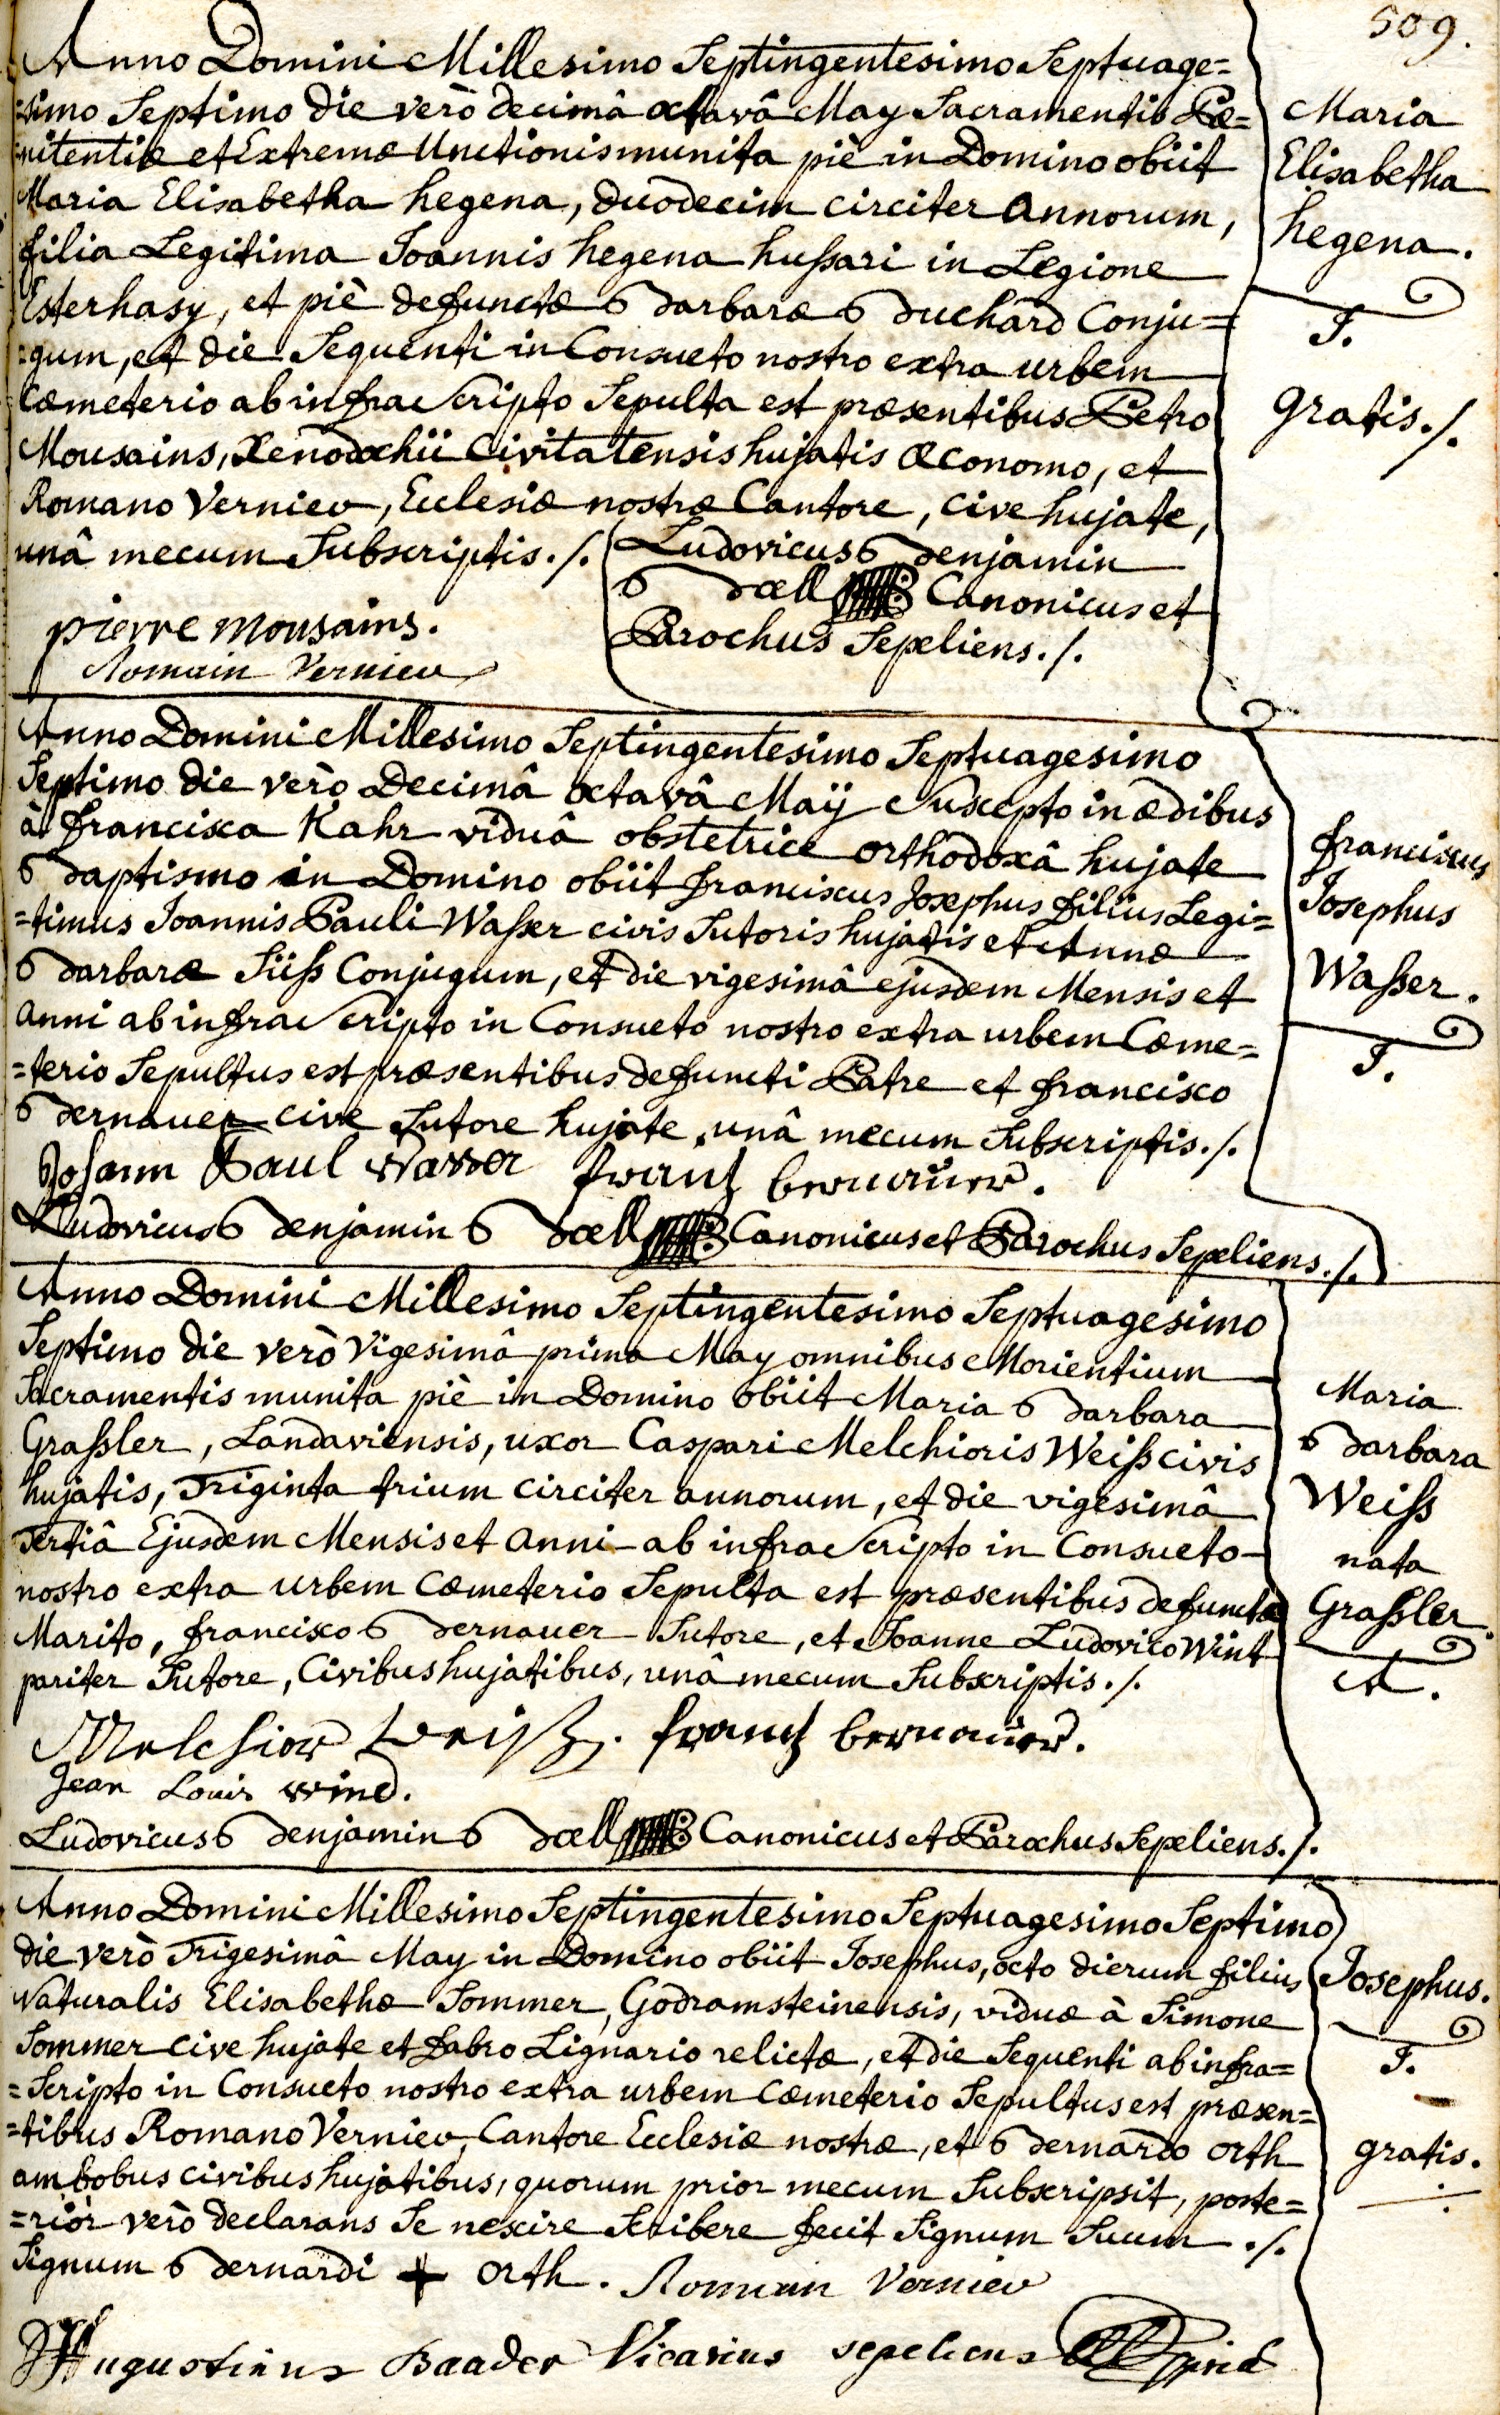 509.
Anno Domini Millesimo Septingentesimo Septuage=
=simo Septimo die verò decimâ octavâ May Sacramentis Pœ=
=nitentiæ et Extremæ Unctionis munita piè in Domino obiit
Maria Elisabetha hegena, duodecim circiter annorum,
filia Legitima Joannis hegena hußari in Legione
Esterhasy, et piè defunctæ Barbaræ Buchard Conju=
=gum, et die Sequenti in Consueto nostro extra urbem
Cœmeterio ab infra Scripto Sepulta est præsentibus Petro
Mousains, Xenodochii Civitatensis hujatis œconomo, et
Romano Verniev, Ecclesiæ nostræ Cantore, cive hujate,
unâ mecum Subscriptis./.
Maria
Elisabetha
hegena.
S.
gratis./.
pierre mousains.
Romain Verniev
Ludovicus Benjamin
Bœll Canonicus et
Parochus Sepeliens./.
Anno Domini Millesimo Septingentesimo Septuagesimo
Septimo die verò Decimâ octavâ Maÿ Suscepto in ædibus
à Francisca Kahr viduâ obstetrice orthodoxâ hujate
Baptismo in Domino obiit Franciscus Josephus filius Legi=
=timus Joannis Pauli Waßer civis Sutoris hujatis et Annæ
Barbaræ Süß Conjugum, et die vigesimâ ejusdem Mensis et
anni ab infra Scripto in Consueto nostro extra urbem Cœme=
=terio Sepultus est præsentibus defuncti Patre et francisco
Bernauer cive Sutore hujate, unâ mecum Subscriptis./.
Franciscus
Josephus
Waßer.
S.
Johann Paul Wasser frantz bernauer.
Ludovicus Benjamin Bœll Canonicus et Parochus Sepeliens./.
Anno Domini Millesimo Septingentesimo Septuagesimo
Septimo die verò vigesimâ prima May omnibus Morientium
Sacramentis munita piè in Domino obiit Maria Barbara
Graßler, Landaviensis, uxor Caspari Melchioris Weiß civis
hujatis, Triginta trium circiter annorum, et die vigesimâ
Tertiâ Ejusdem Mensis et anni ab infra Scripto in Consueto
nostro extra urbem Cœmeterio Sepulta est præsentibus defunctæ
Marito, francisco Bernauer Sutore, et Joanne Ludovico Wint
pariter Sutore, Civibus hujatibus, unâ mecum Subscriptis./.
Maria
Barbara
Weiß
nata
Graßler.
A.
Melchior weiß. frantz bernauer.
Jean Louis wind.
Ludovicus Benjamin Bœll Canonicus et Parochus Sepeliens./.
Anno Domini Millesimo Septingentesimo Septuagesimo Septimo
die verò Trigesimâ May in Domino obiit Josephus, octo dierum filius
Naturalis Elisabethæ Sommer, Godramsteinensis, viduæ à Simone
Sommer cive hujate et fabro Lignario relictæ, et die Sequenti ab infra=
=Scripto in Consueto nostro extra urbem Cœmeterio Sepultus est præsen=
=tibus Romano Verniev, Cantore Ecclesiæ nostræ, et Bernardo Orth
ambobus civibus hujatibus, quorum prior mecum Subscripsit, poste=
=rior verò declarans Se nescire Scribere fecit Signum Suum ./.
Josephus.
S.
gratis.
Signum Bernardi + Orth. Romain Verniev
Augustinus Baader Vicarius sepeliens